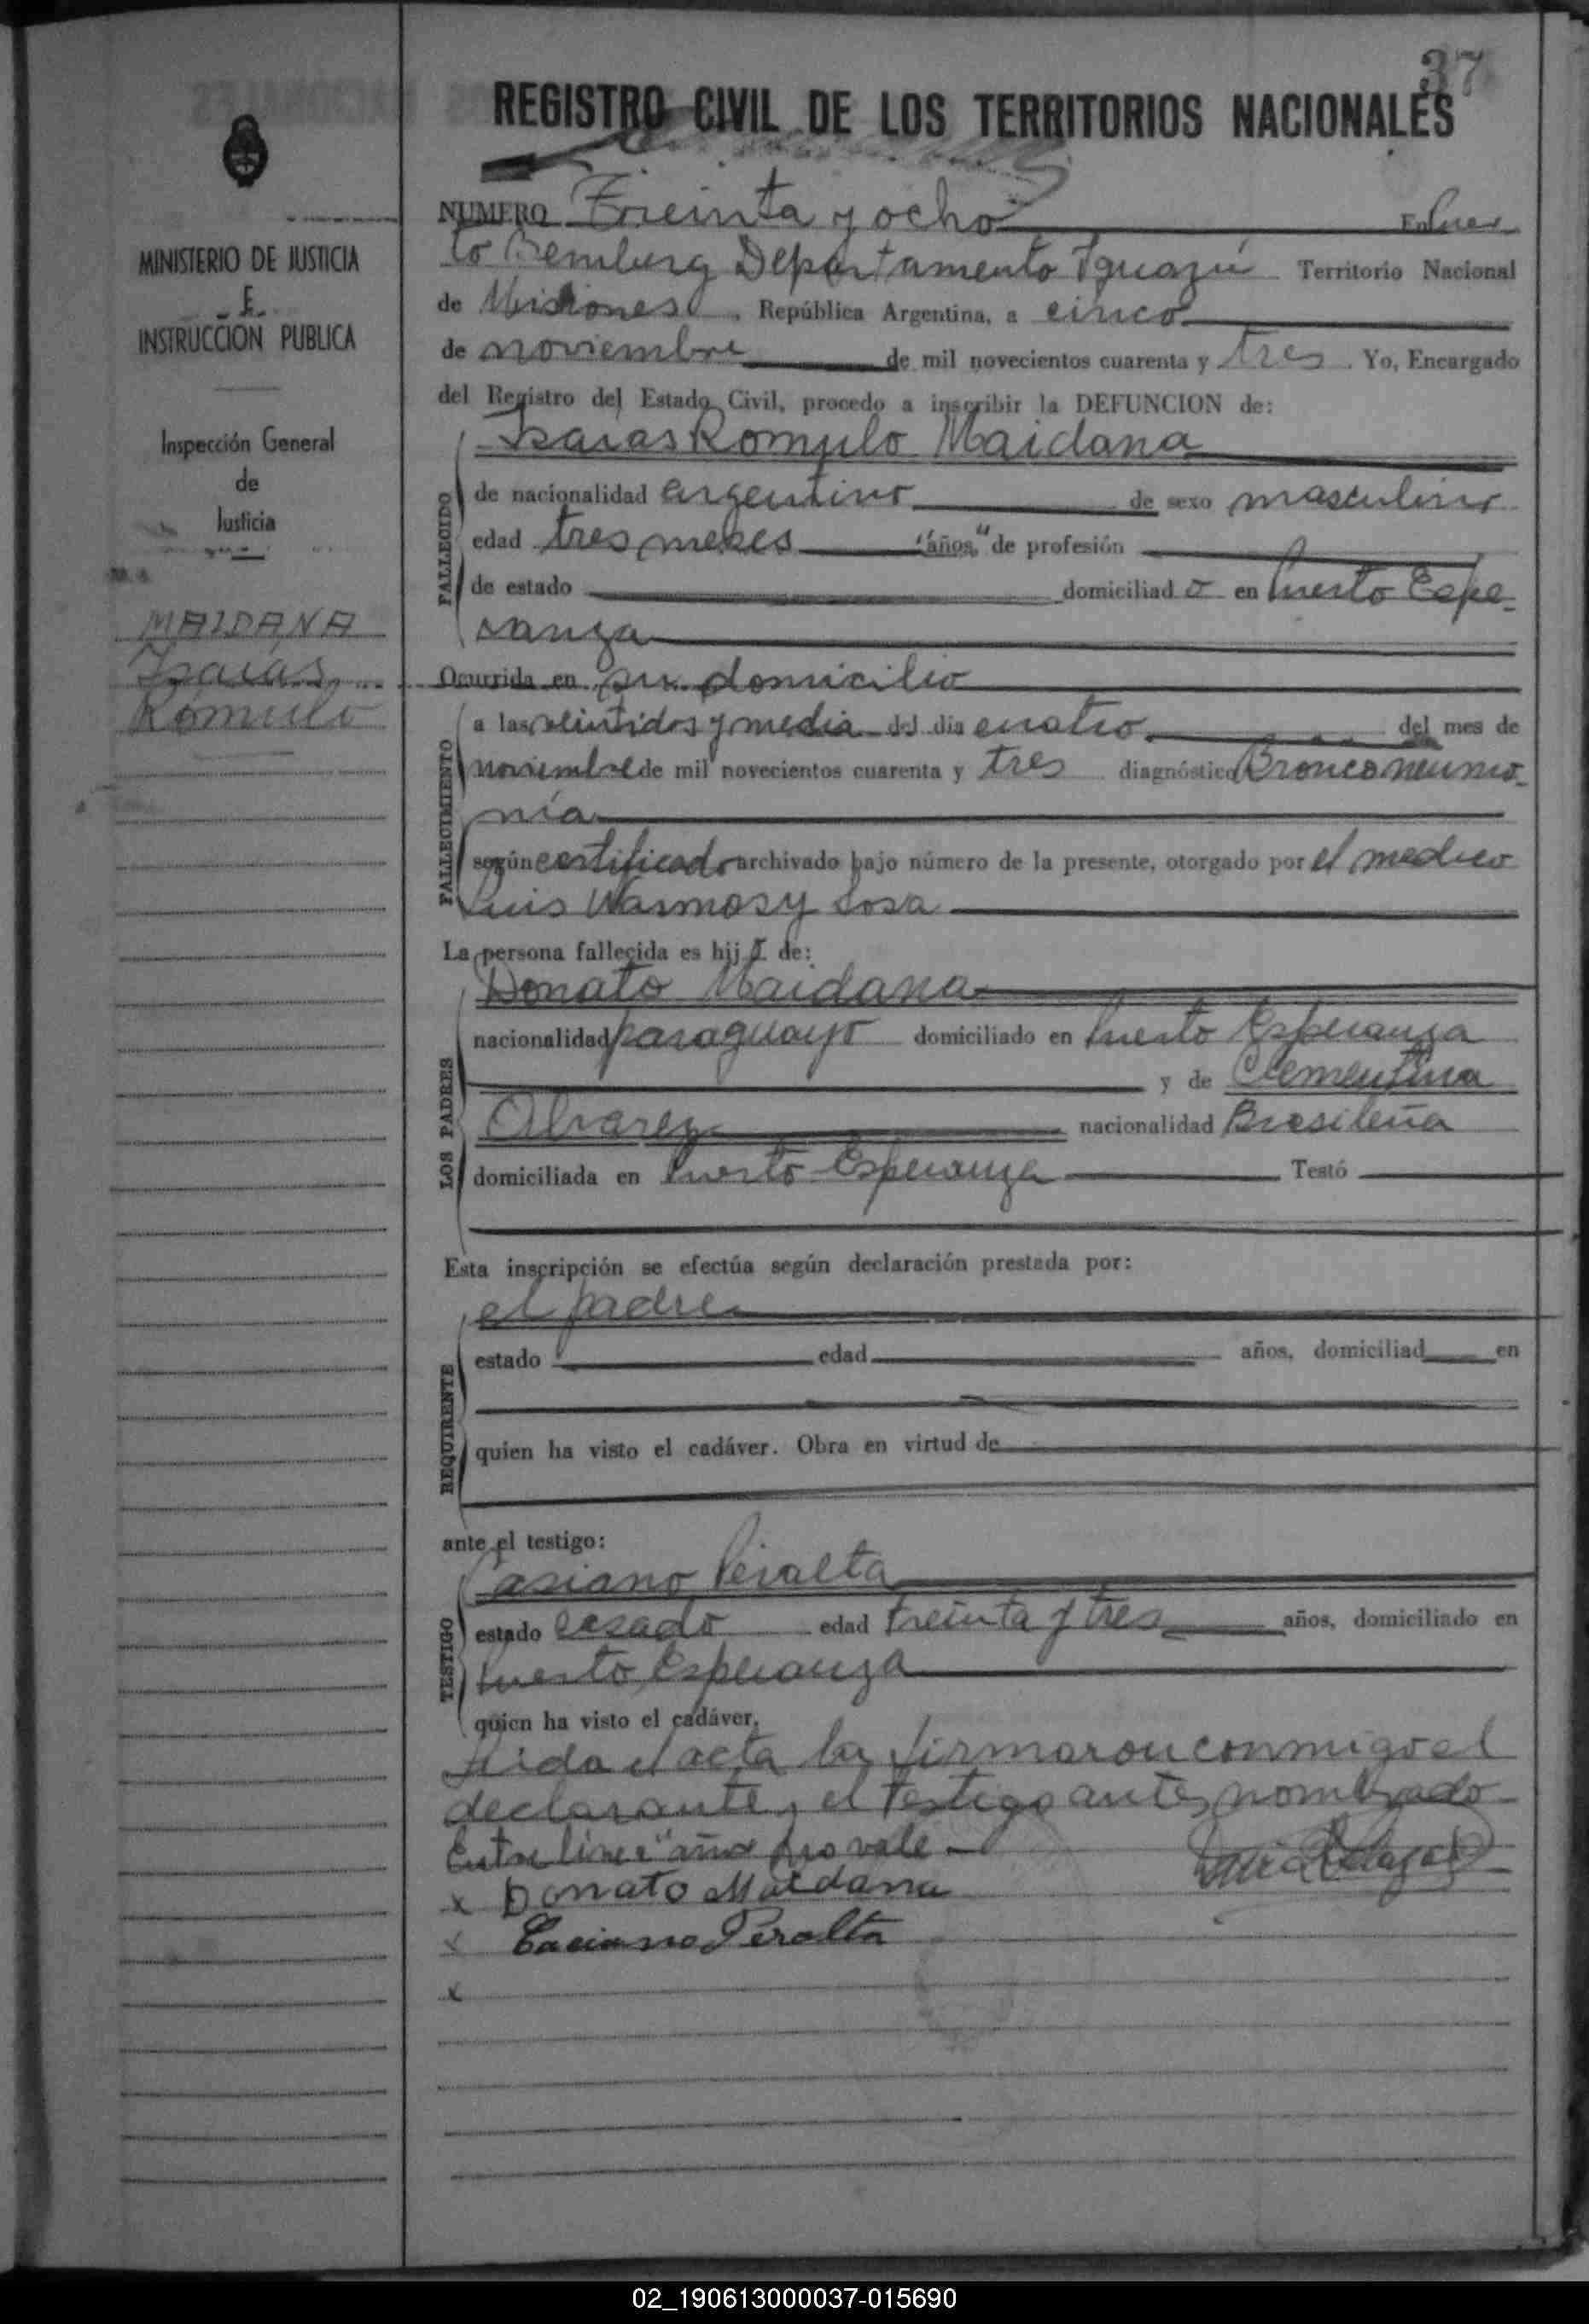 37
REGISTRO CIVIL DE LOS TERRITORIOS NACIONALES
MINISTERIO DE JUSTICIA
E
INSTRUCCION PUBLICA
Inspección General
de
Justicia
MAIDANA
Isaías
Rómulo
NUMERO Treinta y ocho En Puer
to Bemberg Departamento Iguazú Territorio Nacional
de Misiones, República Argentina, a cinco
de noviembre de mil novecientos cuarenta y tres. Yo, Encargado
del Registro del Estado Civil, procedo a inscribir la DEFUNCION de:
Isaias Romulo Maidana
FALLECIDO
de nacionalidad argentino de sexo masculino
edad tres meses "años," de profesión
de estado domiciliado en Puerto Espe-
ranza
Ocurrida en su domicilio
FALLECIMIENTO
a las veintidos y media del día cuatro del mes de
noviembre de mil novecientos cuarenta y tres diagnóstico Bronconeumo-
nía
según certificado archivado bajo número de la presente, otorgado por el medico
Luis Wasmosy Sosa
La persona fallecida es hijo de:
Donato Maidana
LOS PADRES
nacionalidad paraguayo domiciliado en Puerto Esperanza
y de Clementina
Alvarez nacionalidad Brasileña
domiciliada en Puerto Esperanza Testó
Esta inscripción se efectúa según declaración prestada por:
el padre
REQUIRENTE
estado edad años, domiciliad en
quien ha visto el cadáver. Obra en virtud de
ante el testigo:
Casiano Peralta
TESTIGO
estado casado edad treinta y tres años, domiciliado en
Puerto Esperanza
quien ha visto el cadáver.
Leida el acta la firmaron conmigo el
declarante y el testigo antes nombrado
Entre linea "años" no vale -
x Donato Maidana
x Caciano Peralta
x
02_190613000037-015690